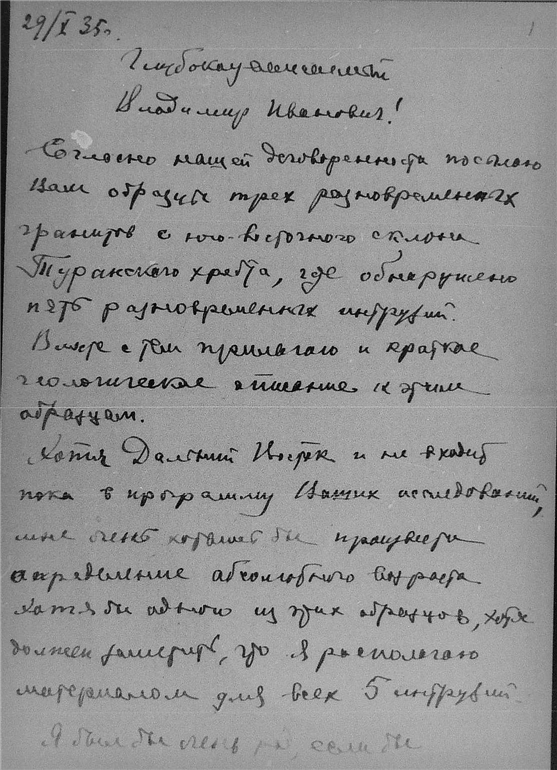 29/X 35г.
1
Глубокоуважаемый
Владимир Иванович!
Согласно нашей договоренности посылаю
Вам образцы трех разновременных
гранитов с юго-восточного склона
Туранского хребта, где обнаружено
пять разновременных интрузий.
Вместе с тем прилагаю и краткое
геологическое описание к этим
образцам.
Хотя Дальний Восток и не входит
пока в программу Ваших исследований,
мне очень хотелось бы произвести
определение абсолютного возраста
хотя бы одного из этих образцов, хотя
должен заметить, что я располагаю
материалом для всех 5 интрузий.
Я был бы очень рад, если бы